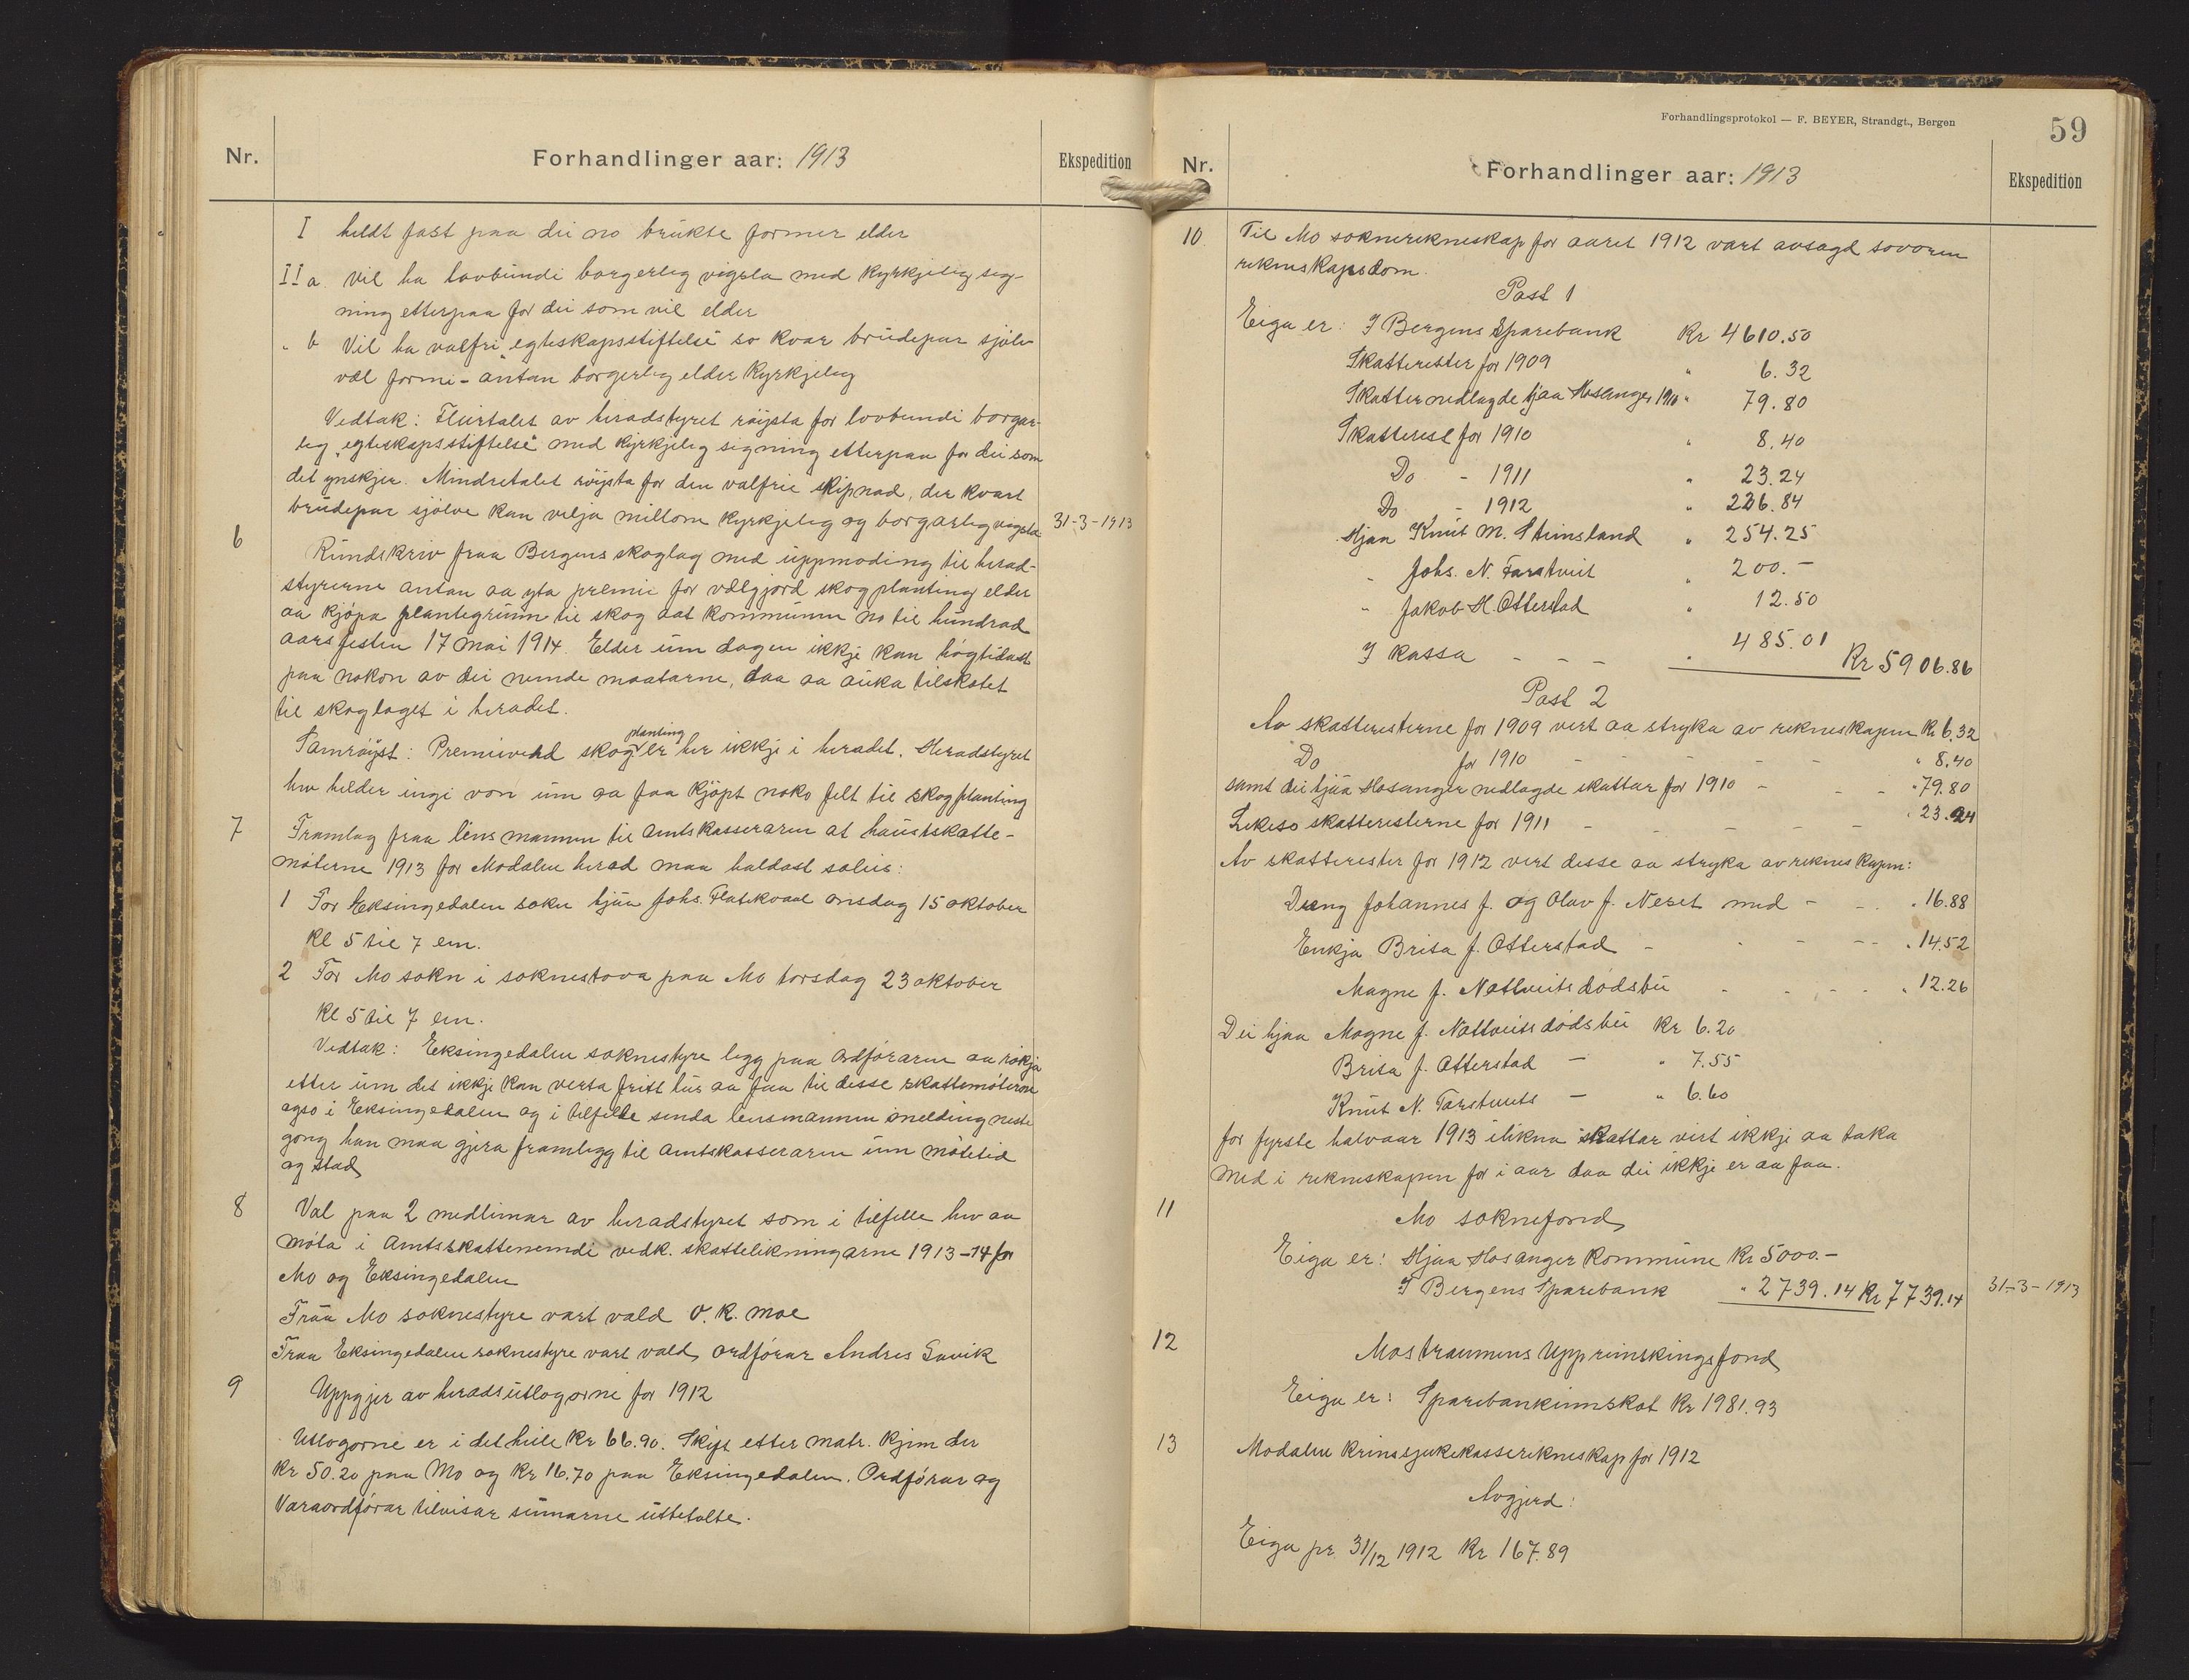 Nr.
Forhandlinger aar: 1913
Ekspedition
I heldt fast paa dei no brukte former elder
II a. Vil ha lovbundi borgerleg vigsla med kyrkjeleg sig-
ning etterpaa for dei som vil elder
" b Vil ha valfri "egteskapsstiftelse" so kvar brudepar sjølv
væl formi - antan borgerleg elder kyrkjeleg
Vedtak: Fleirtalet av heradstyret røysta for lovbundi borgar-
leg "egteskapsstiftelse" med kyrkjeleg signing etterpaa for dei som
det ynskjer. Mindretalet røysta for den valfrie skipnad, der kvart
brudepar sjølve kan velja millom kyrkjeleg og borgarleg vigsla
31-3-1913
6
Rundskriv fraa Bergens skoglag med uppmoding til herad-
styrerne antan aa yta premie for vælgjord skogplanting elder
aa kjøpa plantegrunn til skog aat kommunen no til hundrad
aarsfesten 17 mai 1914. Elder um dagen ikkje kan høgtidast
paa nokon av dei nemde maatarne, daa aa auka tilskotet
til skoglaget i heradet.
Samrøyst: Premieverd skogplanting er her ikkje i heradet. Heradstyret
hev helder ingi von um aa faa kjøpt noko felt til skogplanting
7
Framlag fraa lensmannen til amtskasseraren at haustskatte-
møterne 1913 for Modalen herad maa haldast soleis:
1 For Eksingedalen sokn hjaa Johs. Flatekvaal onsdag 15 oktober
Kl 5 til 7 em.
2 For Mo sokn i soknestova paa Mo torsdag 23 oktober
Kl 5 til 7 em.
Vedtak: Eksingedalen soknestyre legg paa ordføraren aa røkja
etter um det ikkje kan verta fritt hus aa faa til desse skattemøterne
ogso i Eksingedalen og i tilfelle senda lensmannen melding neste
gong han maa gjera framlegg til amtskasseraren um møtetid
og stad
8
Val paa 2 medlimar av heradstyret som i tilfelle hev aa
møta i amtsskattenemdi vedk. skattelikningarne 1913-14 for
Mo og Eksingedalen
Fraa Mo soknestyre vart vald O. K. Moe
Fraa Eksingedalen soknestyre vart vald ordførar Andres Gavik
9
Uppgjer av heradsutlogorne for 1912
Utlogorne er i det heile Kr 66.90. Skift etter matr. kjem der
Kr 50.20 paa Mo og Kr 16.70 paa Eksingedalen. Ordførar og
Varaordførar tilvisar sumarne utbetalte.
Forhandlingsprotokol — F. BEYER, Strandgt., Bergen
59
Nr.
Forhandlinger aar: 1913
Ekspedition
10
Til Mo soknerekneskap for aaret 1912 vart avsagd sovoren
rekneskapsdom.
Post 1
Eiga er: I Bergens Sparebank Kr 4610.50
Skatterester for 1909 " 6.32
Skatter nedlagde hjaa Hosanger 1910 " 79.80
Skatterest for 1910 " 8.40
Do - 1911 " 23.24
Do - 1912 " 226.84
Hjaa Knut M. Steinsland " 254.25
" Johs. N. Farstveit " 200.-
" Jakob H. Otterstad " 12.50
I kassa - - - " 485.01 Kr 5906.86
Post 2
Av skatteresterne for 1909 vert aa stryka av rekneskapen Kr 6.32
Do for 1910 - - - - - " 8.40
samt dei hjaa Hosanger nedlagde skattar for 1910 - - - " 79.80
Likeso skatteresterne for 1911 - - - - - " 23.24
Av skatterester for 1912 vert desse aa stryka av rekneskapen:
Dreng Johannes J. og Olav J. Neset med - - " 16.88
Enkja Brita J. Otterstad - - - - " 14.52
Magne J. Nottveits dødsbu - - - - " 12.26
Dei hjaa Magne J. Nottveits dødsbu Kr 6.20
Brita J. Otterstad - " 7.55
Knut N. Farstveits - " 6.60
for fyrste halvaar 1913 ilikna skattar vert ikkje aa taka
med i rekneskapen for i aar daa dei ikkje er aa faa.
11
Mo soknefond
Eiga er: Hjaa Hosanger kommune Kr 5000.-
I Bergens Sparebank " 2739.14 Kr 7739.14
31-3-1913
12
Mostraumens Upprenskingsfond
Eiga er: Sparebankinnskot Kr 1981.93
13
Modalen krinssjukekasserekneskap for 1912
Avgjerd:
Eiga pr. 31/12 1912 Kr 167.89